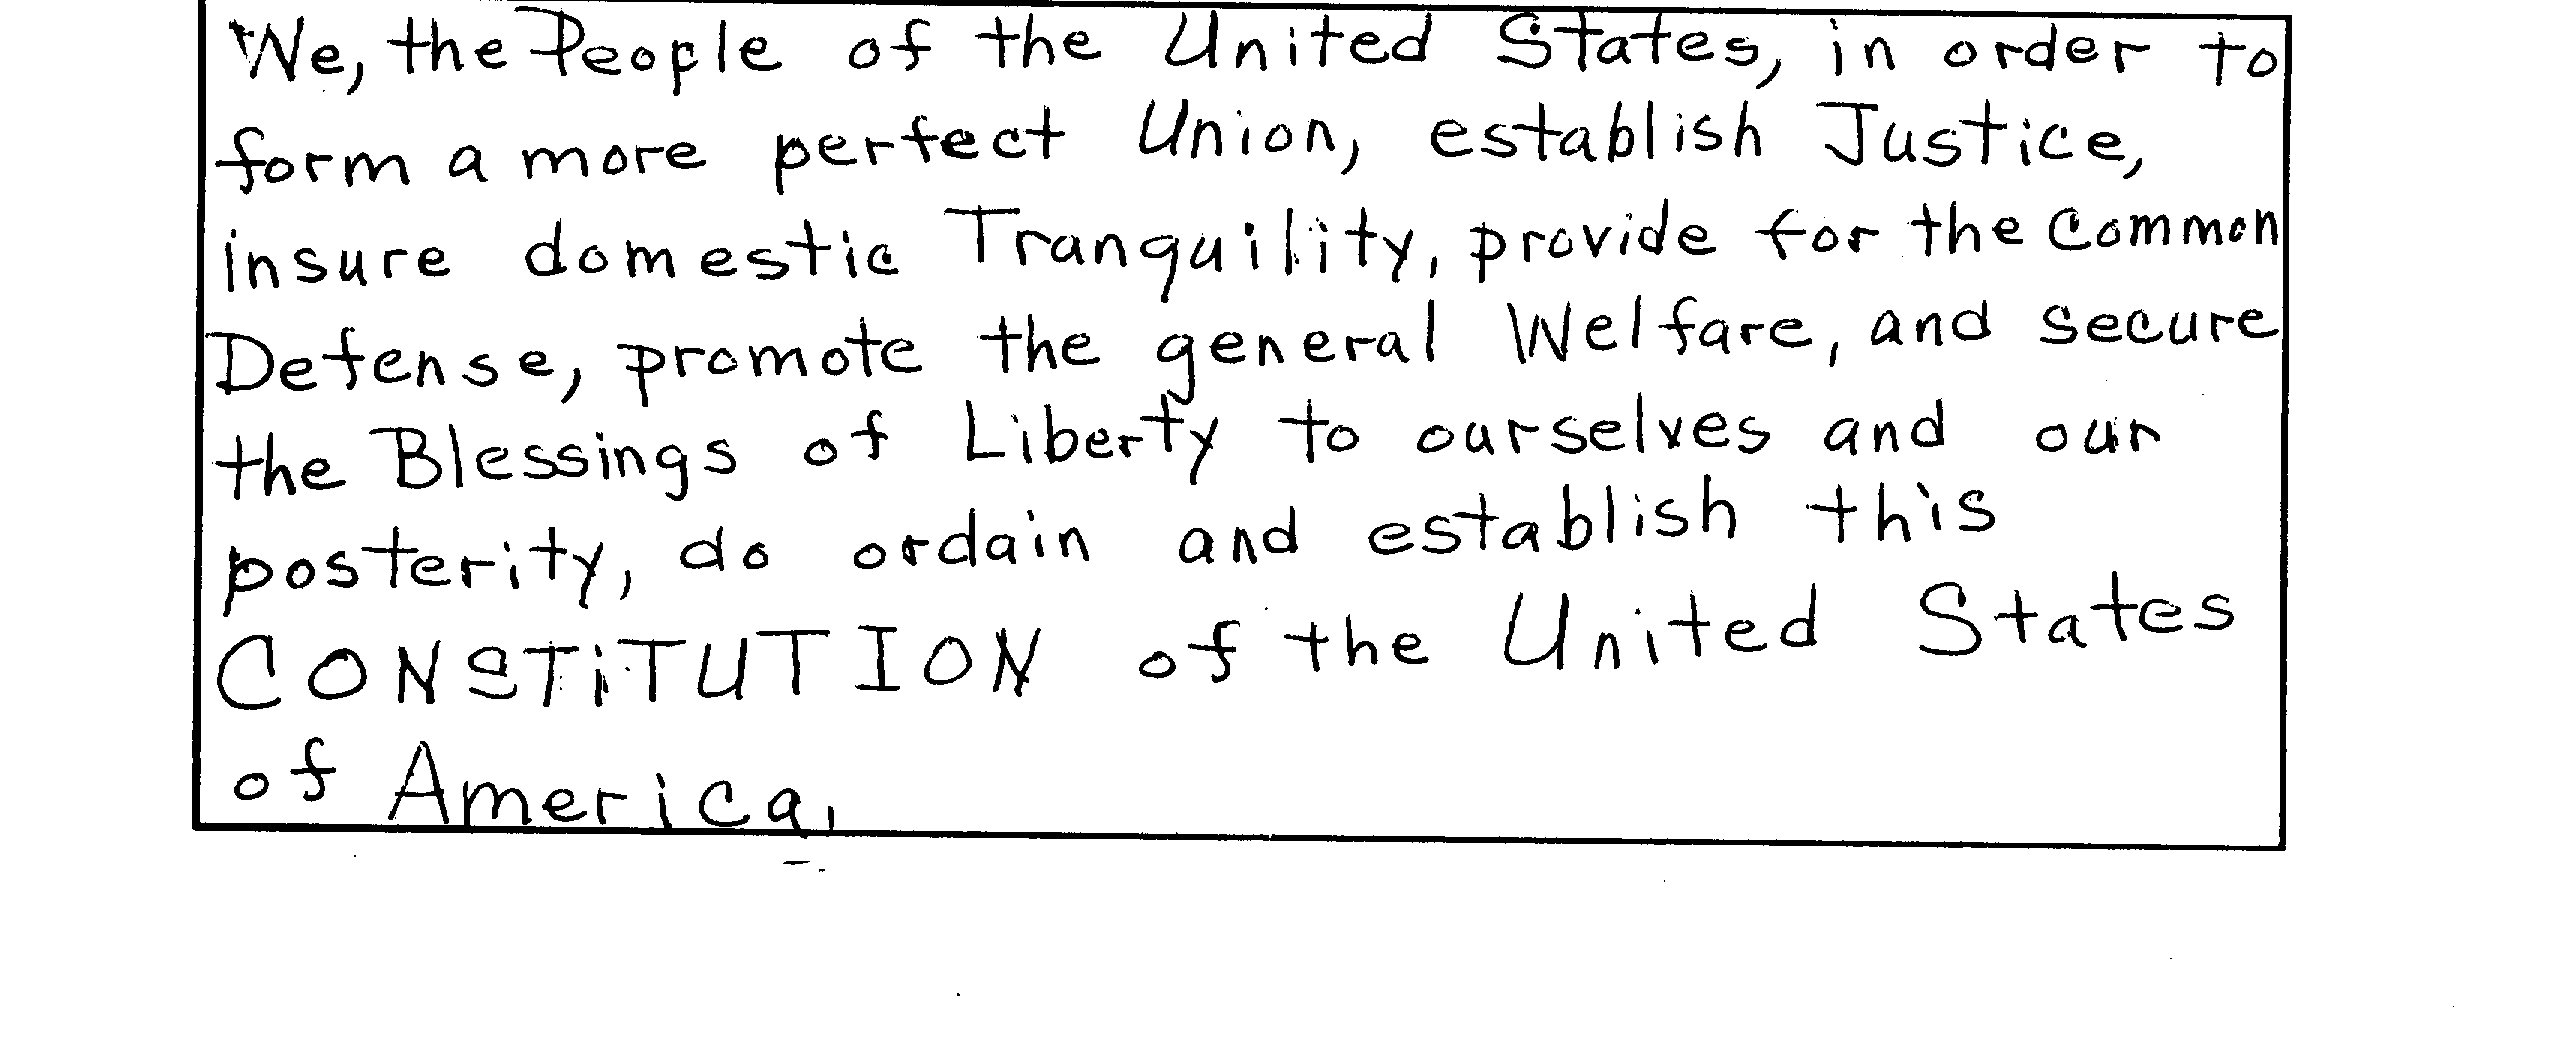 We, the People of the United States, in order to
form a more perfect Union, establish Justice,
insure domestic Tranquility, provide for the Common
Defense, promote the general Welfare, and secure
the Blessings of Liberty to ourselves and our
posterity, do ordain and establish this
CONSTiTUTION of the United States
of America.